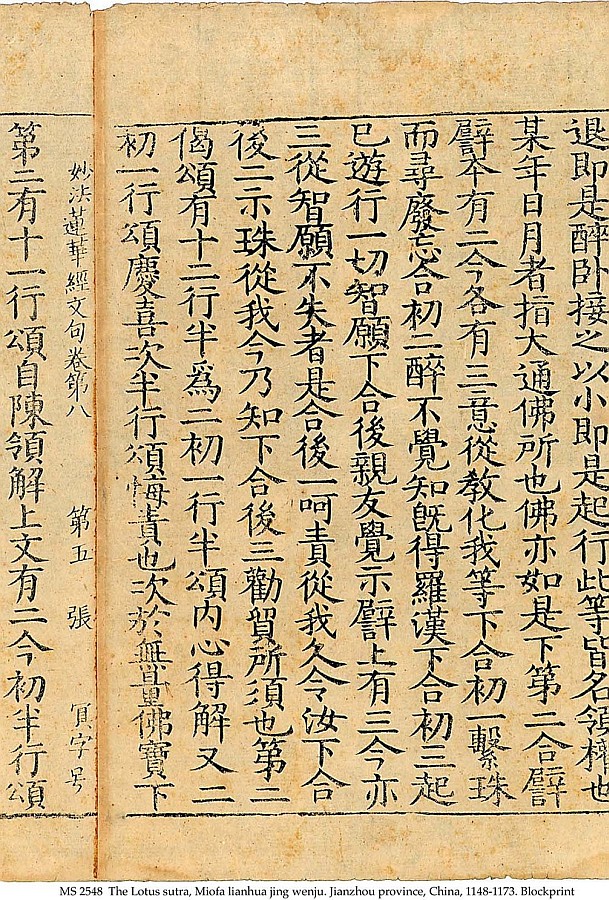 退即是醉卧接之以小即是起行此等皆名領權也
某年日月者指大通佛所也佛亦如是下第二合譬
譬本有二今各有三意從教化我等下合初一繫珠
而尋廢忘合初二醉不覺知既得羅漢下合初三起
已遊行一切智願下合後親友覺示譬上有三今亦
三從智願不失者是合後一呵責從我久令汝下合
後二示珠從我今乃知下合後三勸貿所須也第二
偈頌有十二行半爲二初一行半頌内心得解又二
初一行頌慶喜次半行頌悔責也次於無量佛寶下
妙法蓮華經文句卷第八 第五 張 字号
第二有十一行頌自陳領解上文有二今初半行頌
MS 2548 The Lotus sutra, Miofa lianhua jing wenju. Jianzhou province, China, 1148-1173. Blockprint